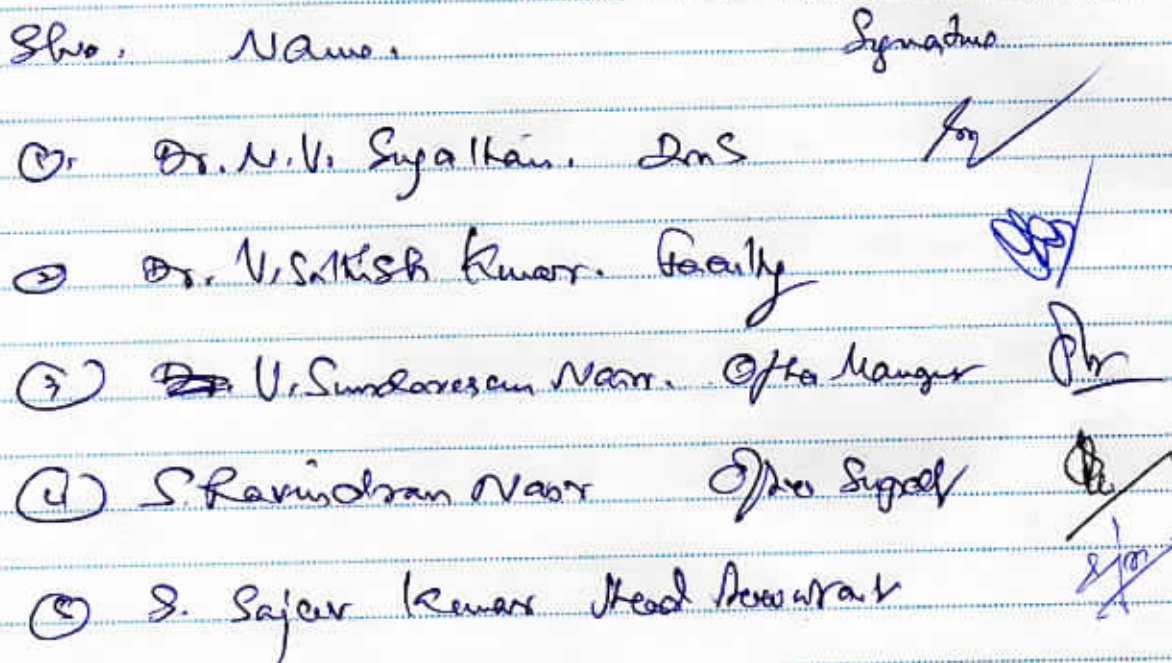 Slno. Name. Signature
①. Dr. N.V. Sugathan. DMS
② Dr. V. Sathish Kumar. Faculty
③ V. Sundaresan Nair. Office Manager
④ S. Ravindran Nair Office Supdt
⑤ S. Sajeev Kumar Head Accountant